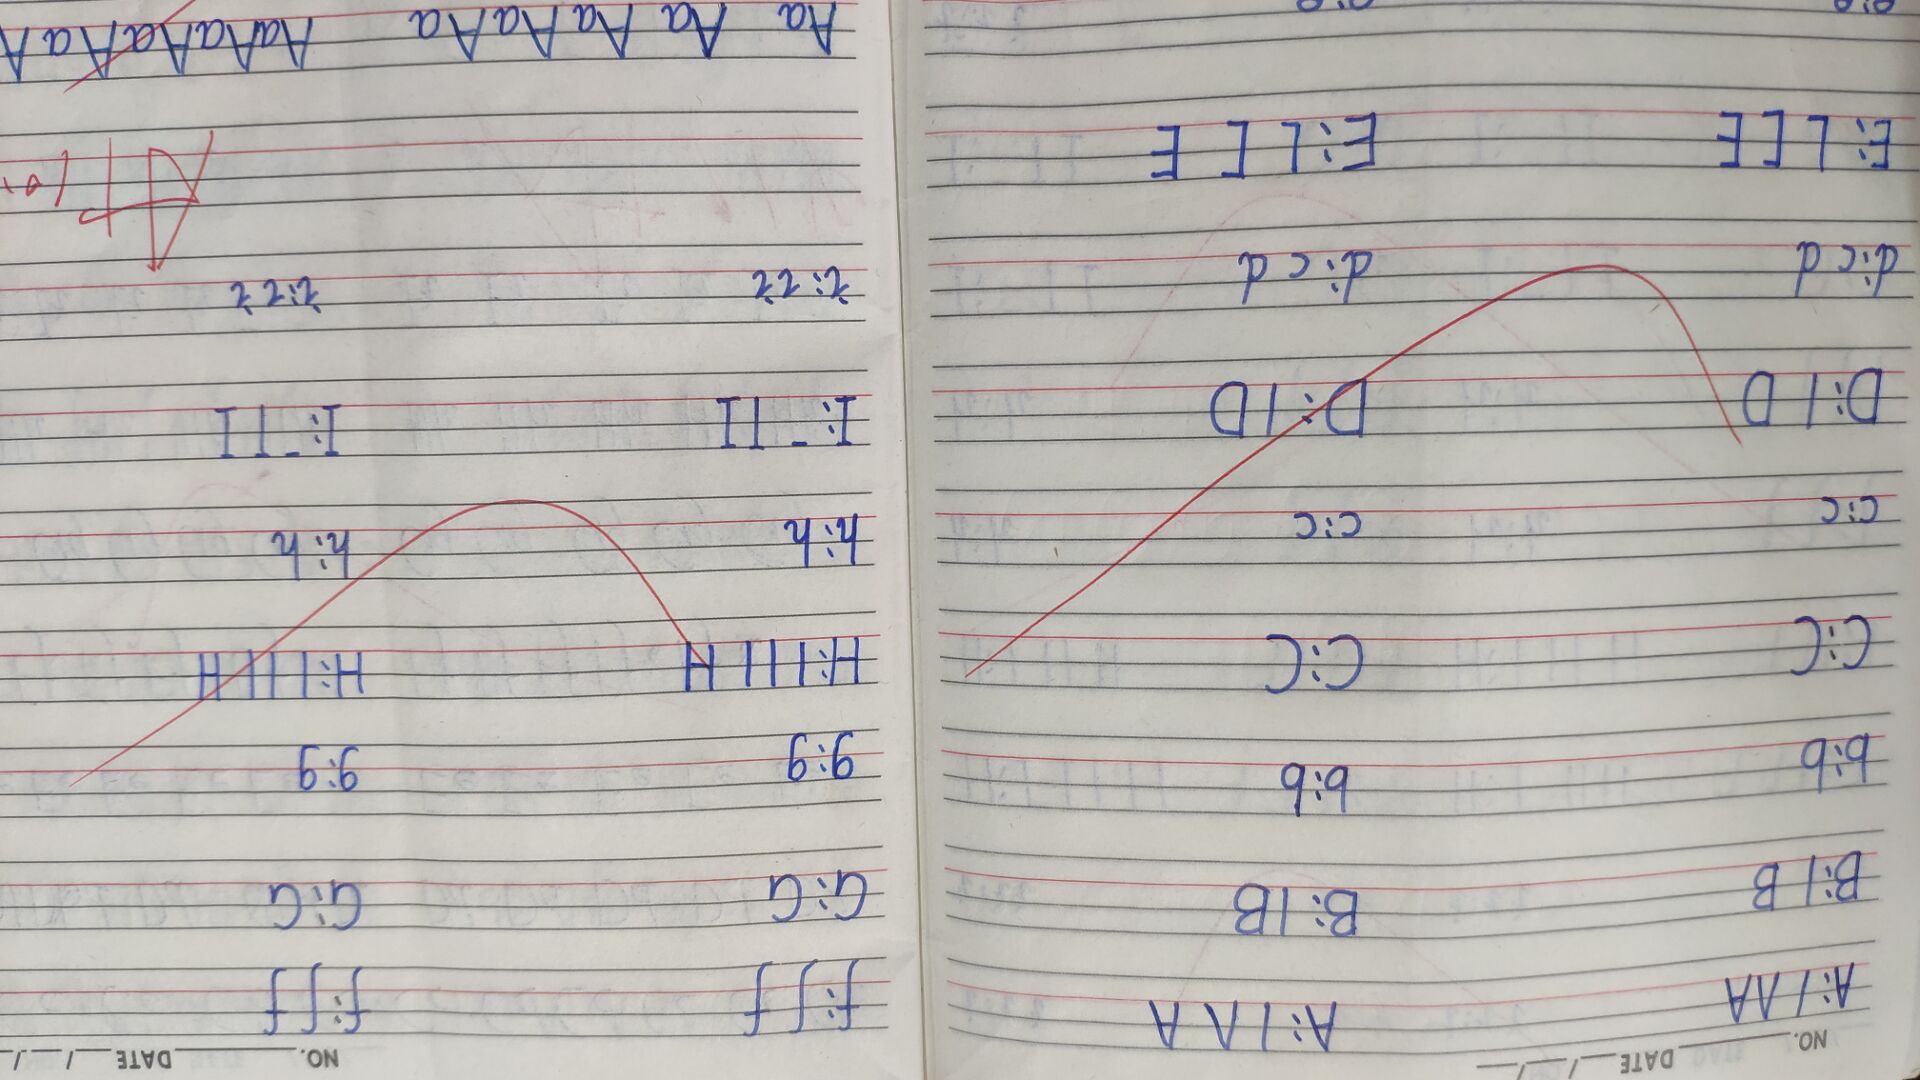 NO. DATE / /
A: / Λ A A: / Λ A
B: | B B: | B
b: b b: b
C: C C: C
c: c c: c
D: | D D: | D
d: c d d: c d
E: L [ E E: L [ E
e: e e: e
NO. DATE / /
f: ʃ f f: ʃ f
G: G G: G
g: g g: g
H: | | | H H: | | | H
h: h h: h
I: - | I I: - | I
i: ı i i: ı i
A+
Aa Aa Aa Aa Aa AaAaAaAaA